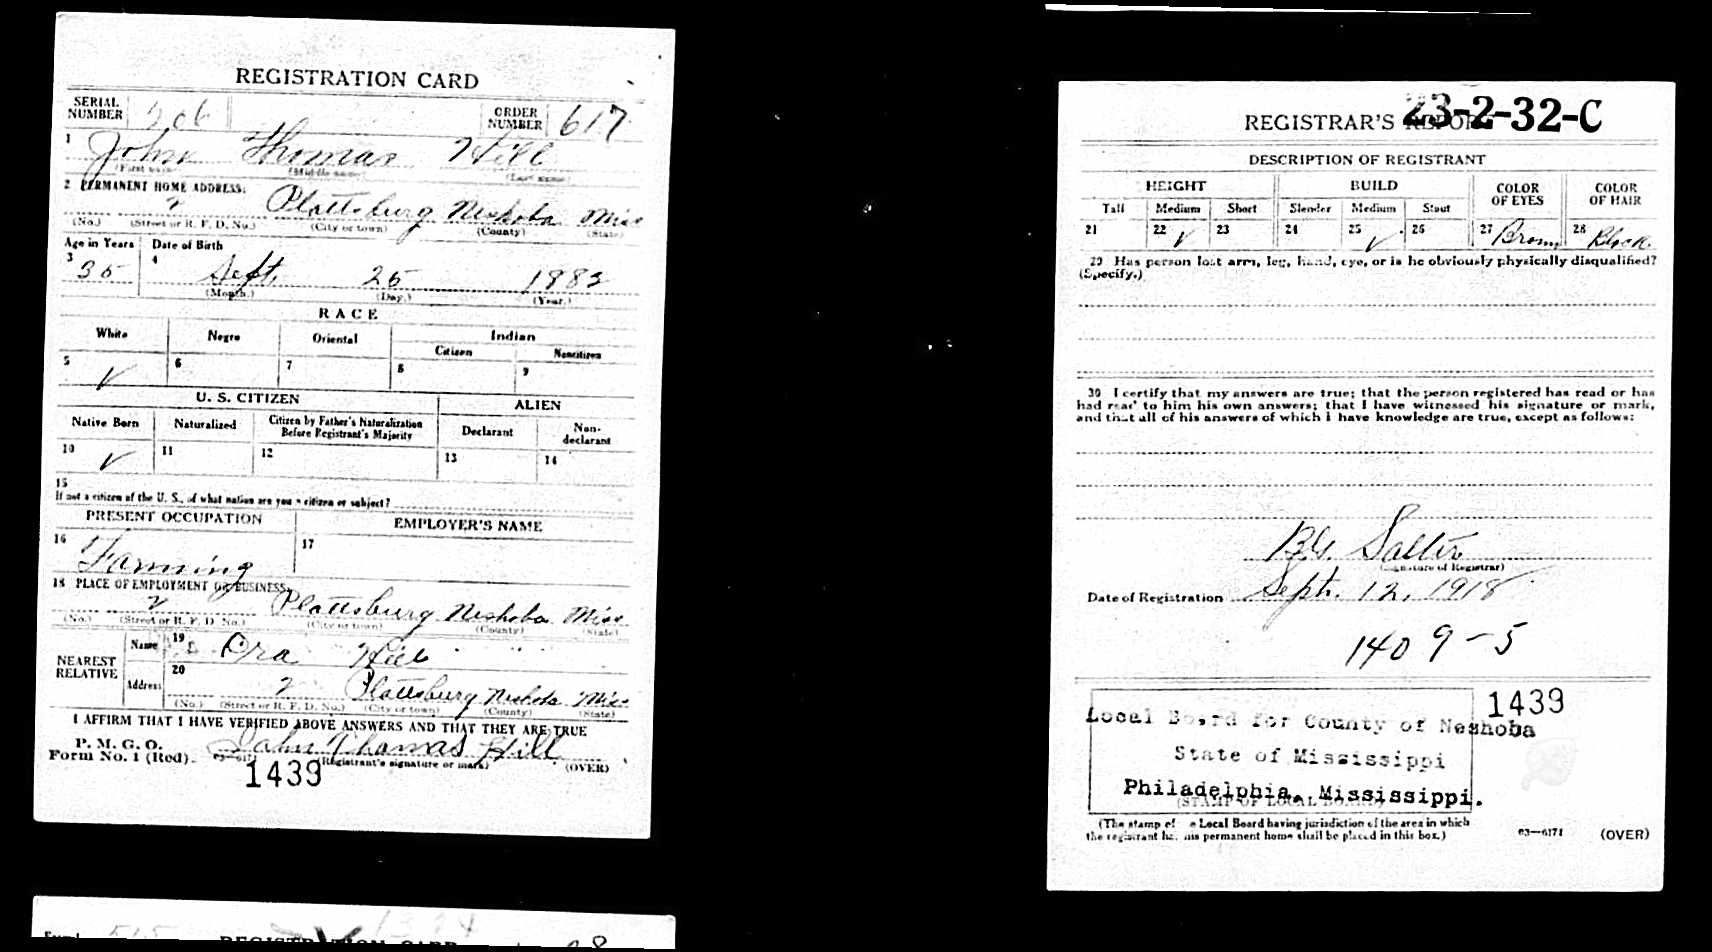 REGISTRATION CARD
SERIAL NUMBER 206 ORDER NUMBER 617
1 John Thomas Hill
(First name) (Middle name) (Last name)
2 PERMANENT HOME ADDRESS:
2 Plattsburg Neshoba Miss
(No.) (Street or R. F. D. No.) (City or town) (County) (State)
Age in Years Date of Birth
3 35 4 Sept. 25 1882
(Month.) (Day.) (Year.)
RACE
White Negro Oriental Indian
Citizen Noncitizen
5 ✓ 6 7 8 9
U. S. CITIZEN ALIEN
Native Born Naturalized Citizen by Father's Naturalization Before Registrant's Majority Declarant Non-declarant
10 ✓ 11 12 13 14
15
If not a citizen of the U. S., of what nation are you a citizen or subject?
PRESENT OCCUPATION EMPLOYER'S NAME
16 Farming 17
18 PLACE OF EMPLOYMENT OR BUSINESS:
2 Plattsburg Neshoba Miss
(No.) (Street or R. F. D. No.) (City or town) (County) (State)
NEAREST RELATIVE Name 19 Ora Hill
Address 20 2 Plattsburg Neshoba Miss
(No.) (Street or R. F. D. No.) (City or town) (County) (State)
I AFFIRM THAT I HAVE VERIFIED ABOVE ANSWERS AND THAT THEY ARE TRUE
P. M. G. O.
Form No. 1 (Red) 03—6171 John Thomas Hill
(Registrant's signature or mark) (OVER)
1439
REGISTRATION CARD
23-2-32-C
REGISTRAR'S REPORT
DESCRIPTION OF REGISTRANT
HEIGHT BUILD COLOR OF EYES COLOR OF HAIR
Tall Medium Short Slender Medium Stout
21 22 ✓ 23 24 25 ✓ 26 27 Brown 28 Black
29 Has person lost arm, leg, hand, eye, or is he obviously physically disqualified?
(Specify.)
30 I certify that my answers are true; that the person registered has read or has
had read to him his own answers; that I have witnessed his signature or mark,
and that all of his answers of which I have knowledge are true, except as follows:
Salter
(Signature of Registrar)
Date of Registration Sept. 12, 1918
1409-5
1439
Local Board for County of Neshoba
State of Mississippi
Philadelphia, Mississippi.
(STAMP OF LOCAL BOARD)
(The stamp of the Local Board having jurisdiction of the area in which
the registrant has his permanent home shall be placed in this box.)
03—6171 (OVER)